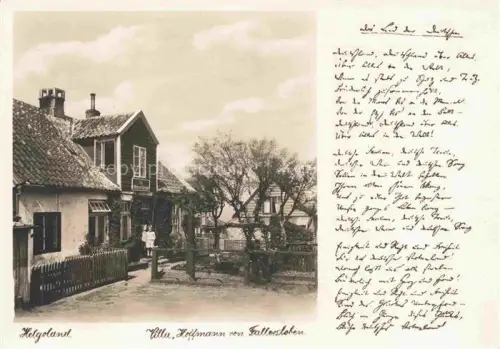 das Lied der Deutschen
Deutschland, Deutschland über Alles,
Über Alles in der Welt,
Wenn es stets zu Schutz und Trutze
Brüderlich zusammenhält,
Von der Maas bis an die Memel,
Von der Etsch bis an den Belt –
Deutschland, Deutschland über Alles,
Über Alles in der Welt!
Deutsche Frauen, deutsche Treue,
Deutscher Wein und deutscher Sang
Sollen in der Welt behalten
Ihren alten schönen Klang,
Uns zu edler That begeistern
Unser ganzes Leben lang –
Deutsche Frauen, deutsche Treue,
Deutscher Wein und deutscher Sang!
Einigkeit und Recht und Freiheit
Für das deutsche Vaterland!
Danach lasst uns alle streben
Brüderlich mit Herz und Hand!
Einigkeit und Recht und Freiheit
Sind des Glückes Unterpfand –
Blüh im Glanze dieses Glückes,
Blühe deutsches Vaterland!
Helgoland
Villa, Hoffmann von Fallersleben